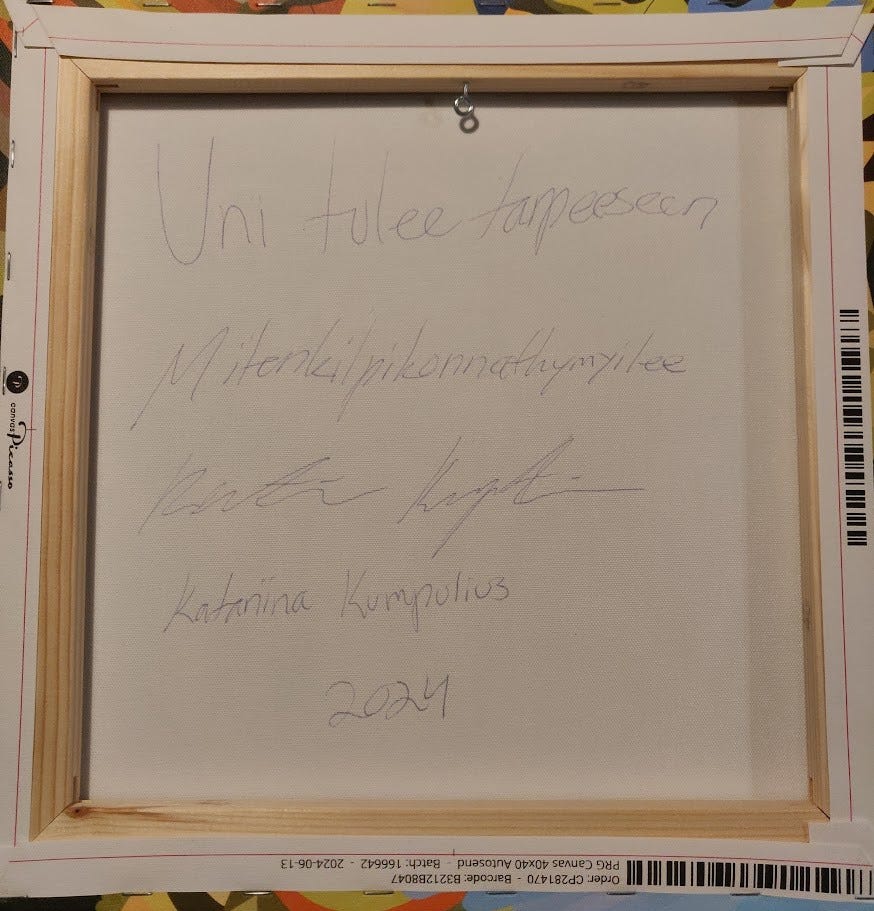 Uni tulee tarpeeseen
Mitenkilpikonnathymyilee
Katariina Kumpulius
2024
canvas Picasso
Order: CP281470 - Barcode: B3212B8047
PRG Canvas 40x40 Autosend - Batch: 166642 - 2024-06-13